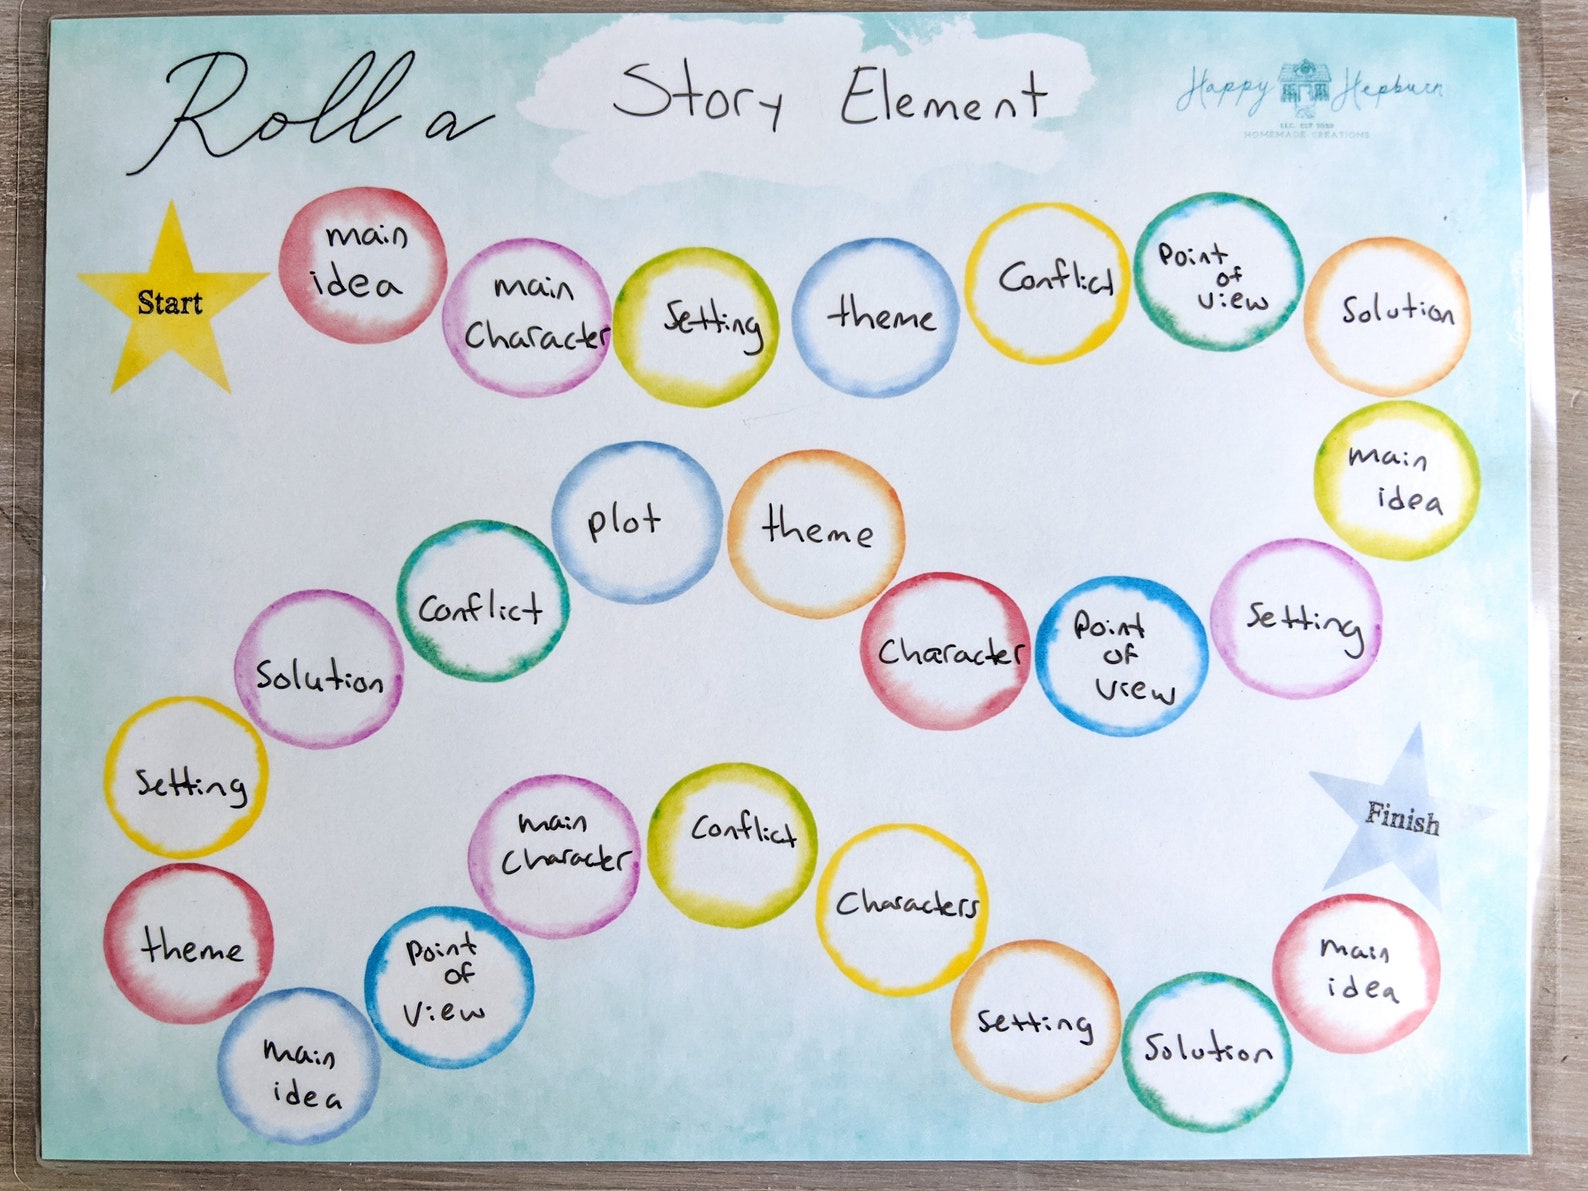 Roll a Story Element
Happy Hepburn
LLC. EST 2020
HOMEMADE CREATIONS
Start
main
idea
main
Character
Setting
theme
Conflict
Point
of
view
Solution
main
idea
Setting
Point
of
view
Character
theme
plot
Conflict
Solution
Setting
theme
main
idea
Point
of
View
main
Character
Conflict
Characters
Setting
Solution
main
idea
Finish